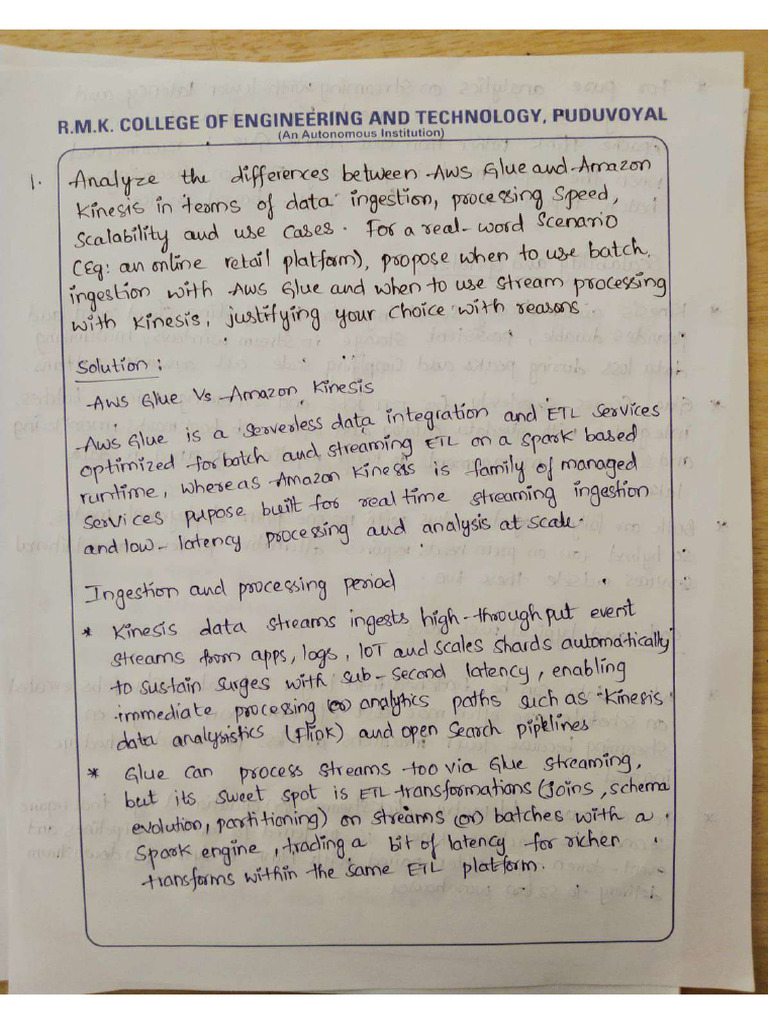 R.M.K. COLLEGE OF ENGINEERING AND TECHNOLOGY, PUDUVOYAL
(An Autonomous Institution)
1. Analyze the differences between AWS Glue and Amazon
Kinesis in terms of data ingestion, processing speed,
Scalability and use cases. For a real-word Scenario
(Eq: an online retail platform), propose when to use batch
ingestion with AWS Glue and when to use stream processing
with Kinesis, justifying your choice with reasons
Solution:
AWS Glue Vs Amazon Kinesis
AWS Glue is a serverless data integration and ETL services
optimized for batch and streaming ETL on a spark based
runtime, whereas Amazon Kinesis is family of managed
services pupose built for real time streaming ingestion
and low-latency processing and analysis at scale.
Ingestion and processing period
* Kinesis data streams ingests high-throughput event
streams from apps, logs, IOT and scales shards automatically
to sustain surges with sub-second latency, enabling
immediate processing (or) analytics paths such as Kinesis
data analysistics (Flink) and open Search pipelines
* Glue can process streams too via Glue streaming,
but its sweet spot is ETL transformations (joins, schema
evolution, partitioning) on streams (or) batches with a
Spark engine, trading a bit of latency for richer
transforms within the same ETL platform.